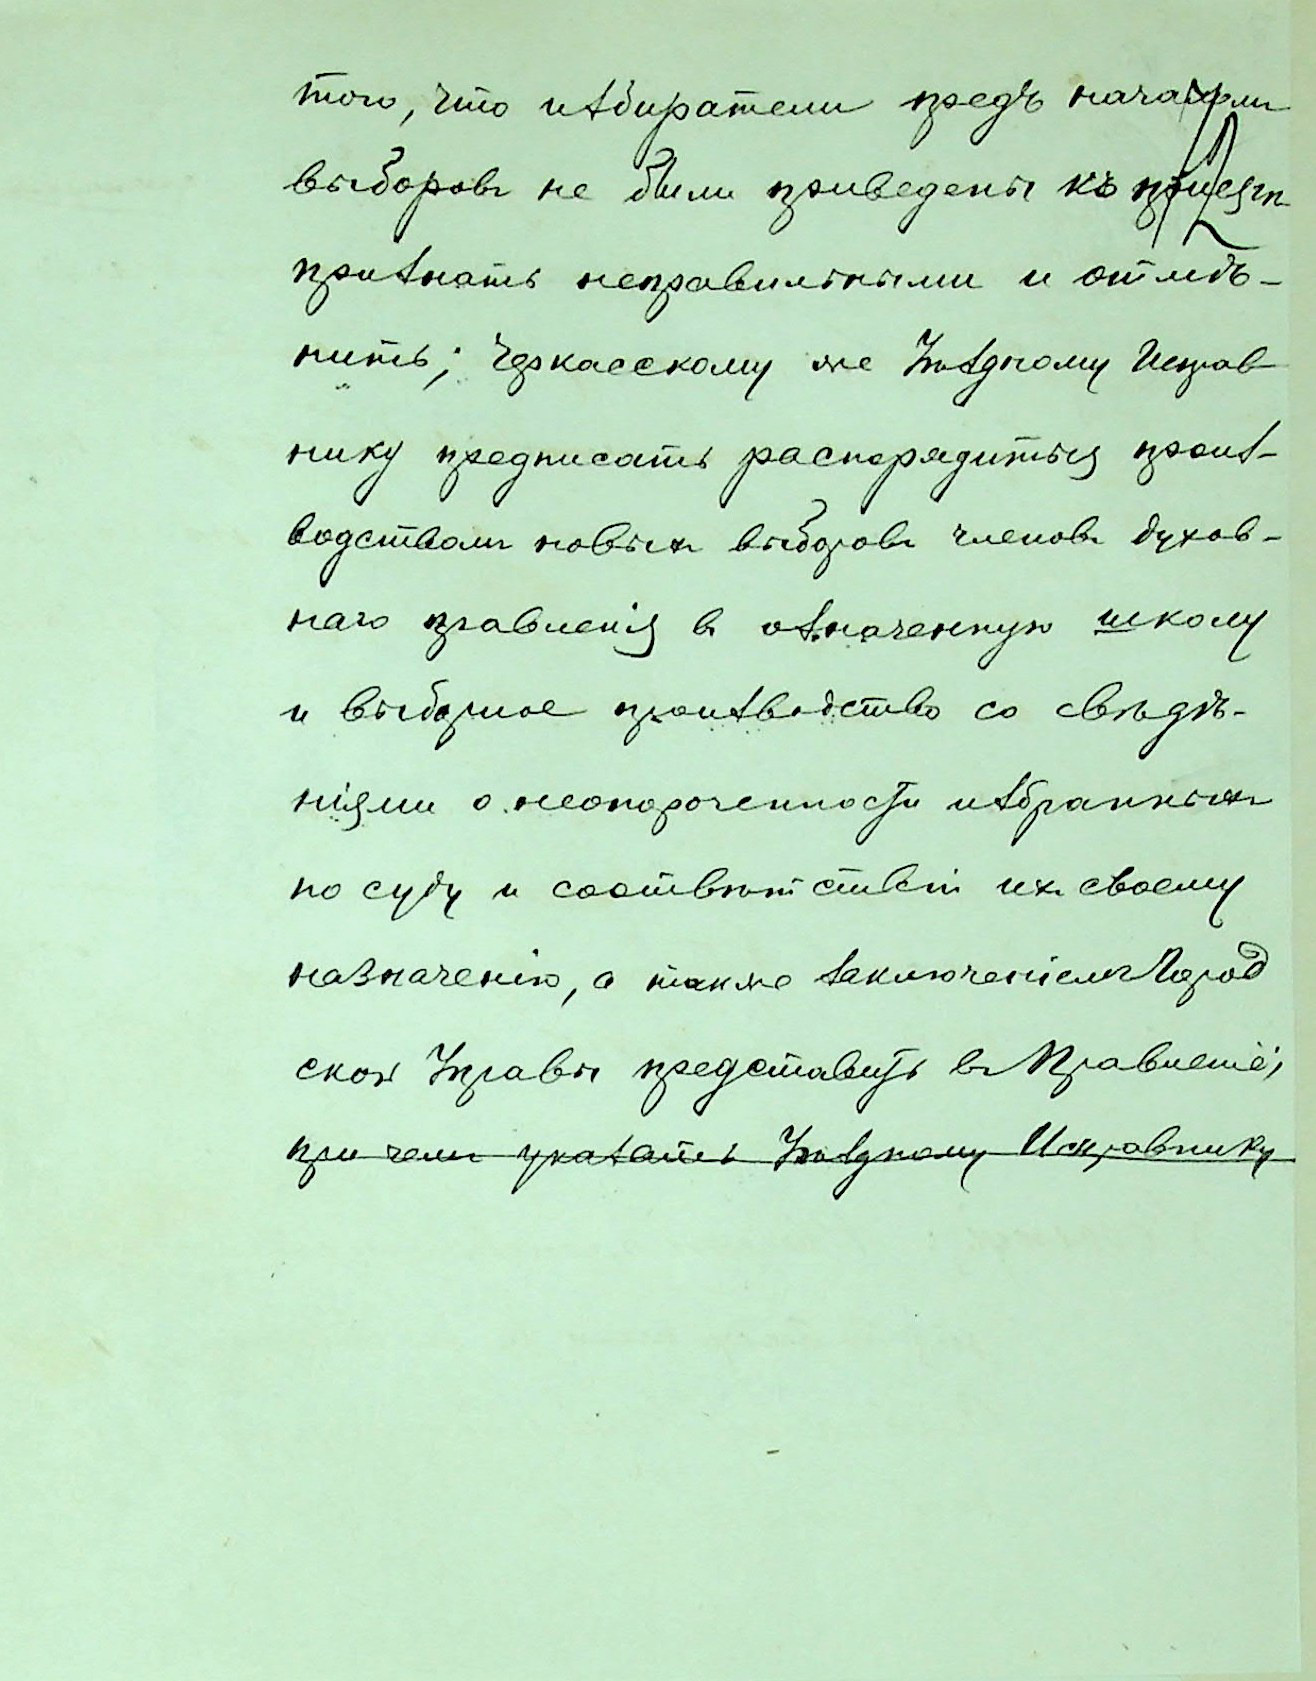 того, что избиратели предъ началомъ
выборовъ не были приведены къ присягѣ
признать неправильными и отмѣ-
нить; Черкасскому же Уѣздному Исправ
нику предписать распорядиться произ-
водствомъ новыхъ выборовъ членовъ духов-
наго правленія въ означенную школу
и выборное производство со свѣдѣ-
ніями о неопороченности избранныхъ
по суду и соотвѣтствіи ихъ своему
назначенію, а также заключеніемъ Город
ской Управы представить въ Правленіе,
при чемъ указать Уѣздному Исправнику